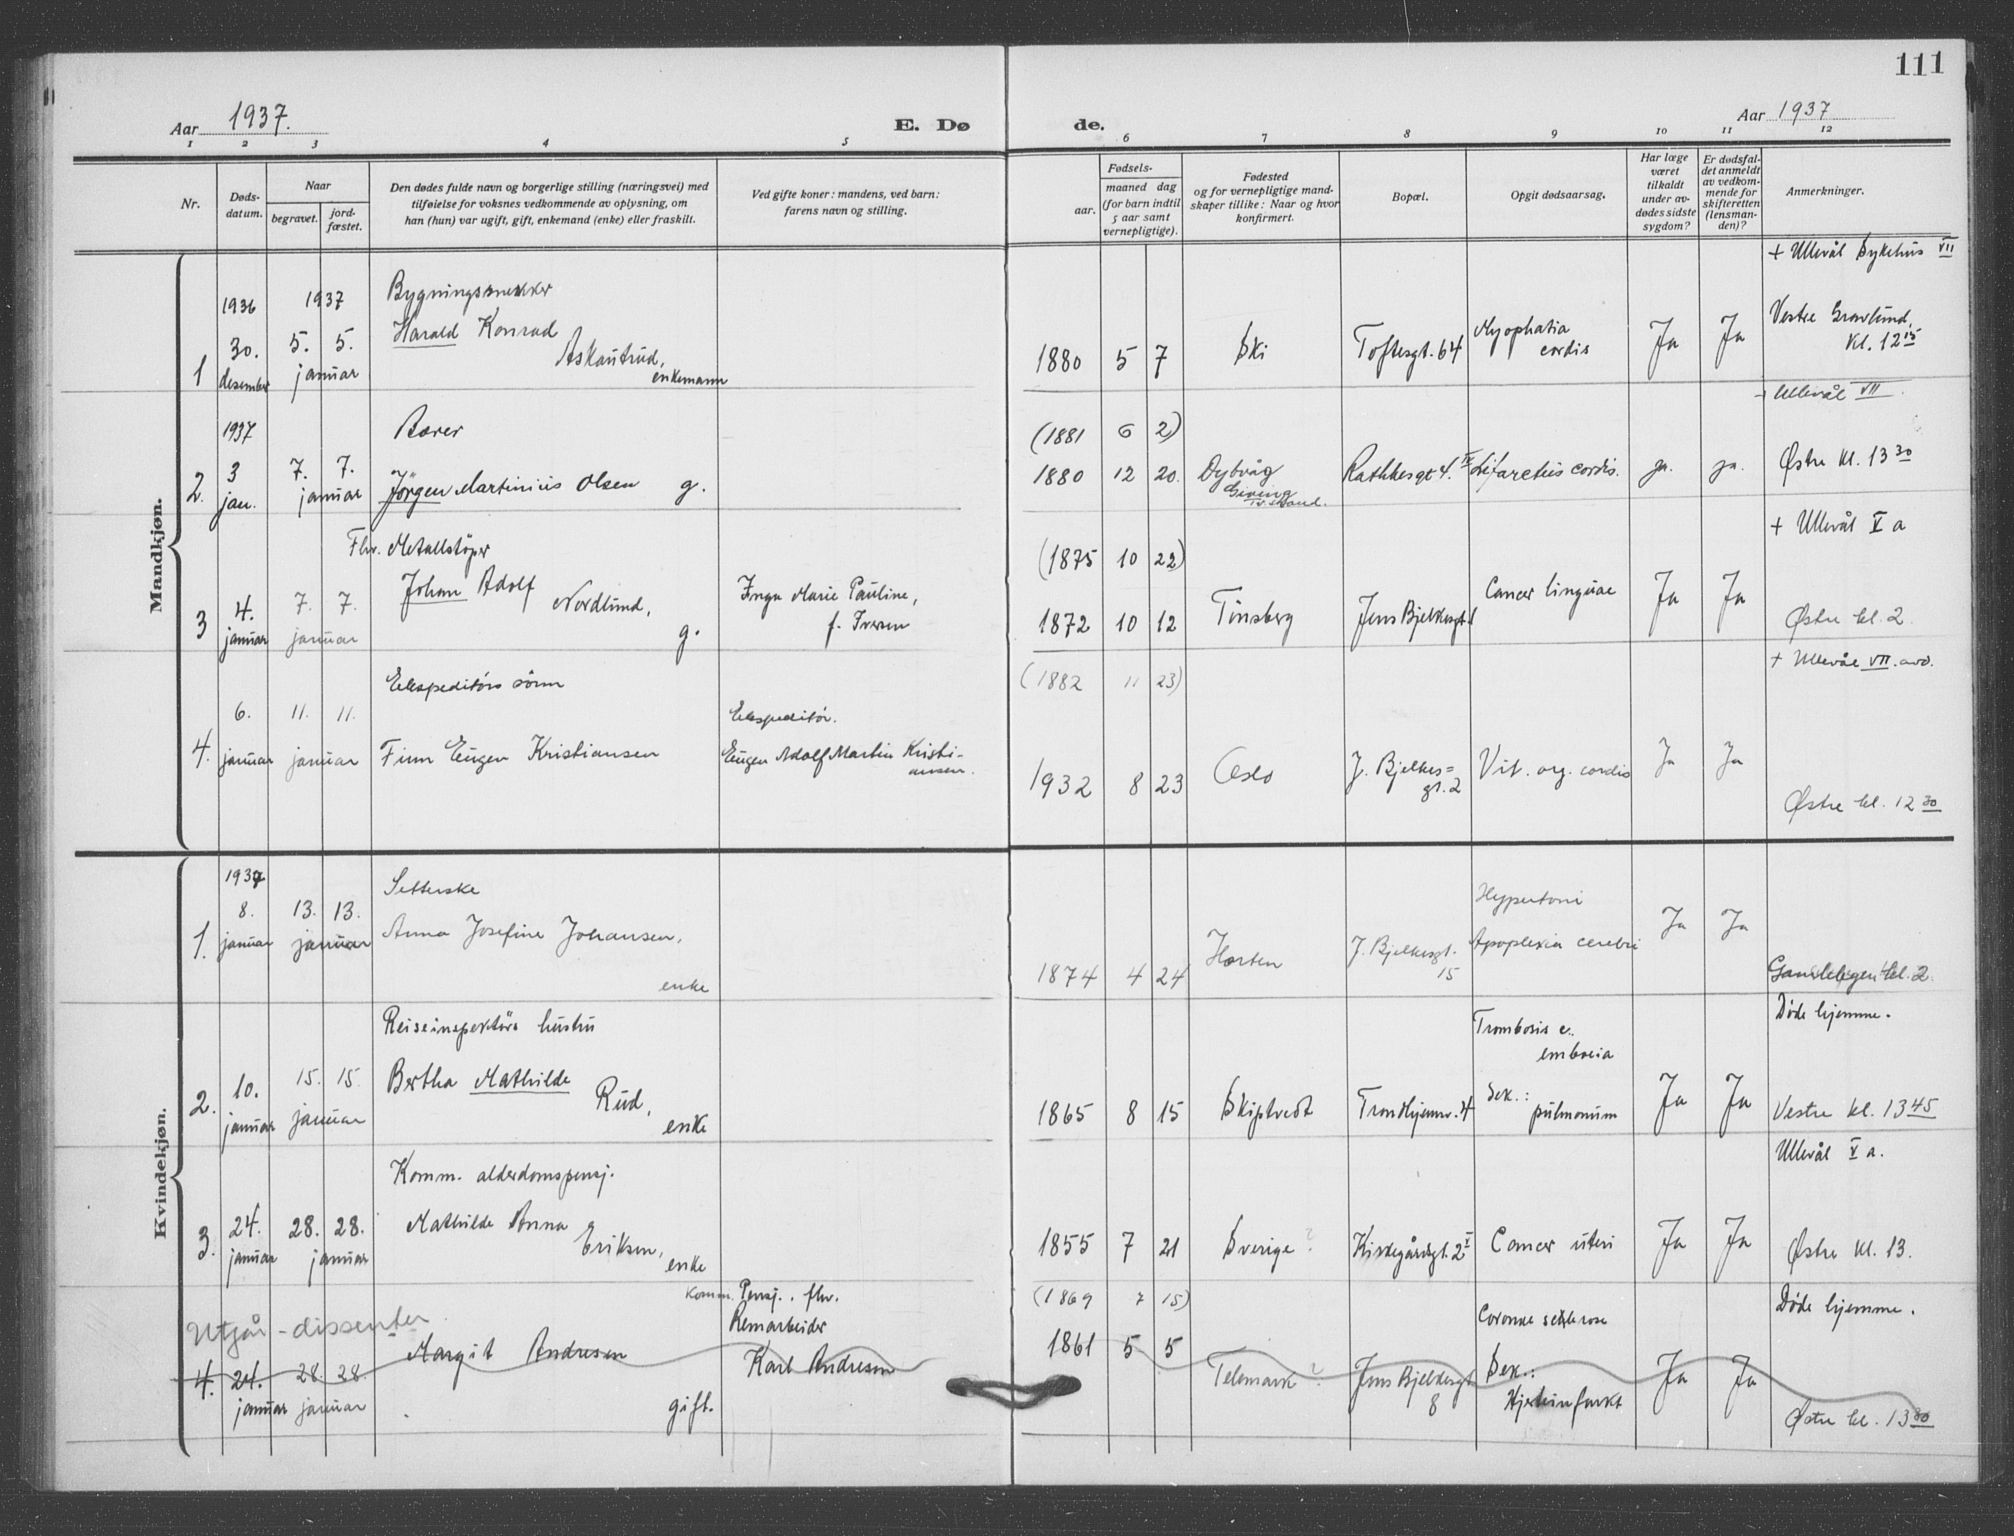 111
Aar 1937.
E. Dø
de.
Aar 1937
1 2 3 4 5 6 7 8 9 10 11 12
Nr.
Døds-
datum.
Naar
begravet.
jord-
fæstet.
Den dødes fulde navn og borgerlige stilling (næringsvei) med
tilføielse for voksnes vedkommende av oplysning, om
han (hun) var ugift, gift, enkemand (enke) eller fraskilt.
Ved gifte koner: mandens, ved barn:
farens navn og stilling.
Fødsels-
aar.
maaned dag
(for barn indtil
5 aar samt
vernepligtige).
Fødested
og for vernepligtige mand-
skaper tillike: Naar og hvor
konfirmert.
Bopæl.
Opgit dødsaarsag.
Har læge
været
tilkaldt
under av-
dødes sidste
sygdom?
Er dødsfal-
det anmeldt
av vedkom-
mende for
skifteretten
(lensman-
den)?
Anmerkninger.
Mandkjøn.
+ Ullevål Sykehus VII
1936 1937 Bygningssnekker
1 30. desember 5. 5. januar Harald Konrad
Askautrud,
enkemann
1880 5 7 Ski Toftesgt. 64 Myophatia
cordis
Ja Ja Vestre Gravlund,
kl. 12 15
+ Ullevål VII
1937 Bærer (1881 6 2)
2. 3 jan. 7. 7. januar Jörgen Martinius Olsen g.
1880 12 20. Dybvåg
Rathkesgt 4. IV Infarctus cordis. ja. ja. Østre kl. 13 30
+ Ullevål V a
Fhv. Metallstöper (1875 10 22)
3 4. januar 7. 7. januar Johan Adolf
Nordlund,
g.
Inga Marie Pauline,
f. Iversen
1872 10 12 Tönsberg Jens Bjelkesgt. Cancer linguae Ja Ja Østre kl. 2
+ Ullevål VII. avd.
Ekspeditörs sönn (1882 11 23)
4. 6. januar 11. 11. januar Finn Eugen Kristiansen
Ekspeditör.
Eugen Adolf Martin Kristi-
ansen.
1932 8 23 Oslo J. Bjelkes=
gt. 2
Vit. org. cordis Ja Ja
Østre kl. 12 30
Kvindekjøn.
1937 Setterske
1. 8. januar 13. 13. januar Anna Josefine Johansen,
enke
1874 4 24 Horten J. Bjelkesgt.
15
Hypertoni
Apoplexia cerebri
Ja Ja
Gamlebyen kl. 2.
Døde hjemme.
Reiseinspektörs hustru
2. 10. januar 15. 15. januar Bertha Mathilde
Rud,
enke
1865 8 15 Skiptvedt Trondhjemsv. 4
Trombosis e.
Sek.:
pulmonum
Ja Ja Vestre kl. 13 45
Ullevål V a.
Komm. alderdomspensj.
3. 24. januar 28. 28. januar Mathilde Anna
Eriksen,
enke
1855 7 21 Sverige? Kirkegårdsgt. 2 I Cancer uteri Ja Ja Østre kl. 13.
Døde hjemme.
Utgår - dissenter
Komm. Pensj. fhv.
Remarbeider
(1869 7 15)
4. 24. januar 28. 28. januar Margit Andresen
gift.
Karl Andresen
1861 5 5 Telemark? Jens Bjelkesgt
8
Coronar sclerose
Sek.:
Hjerteinfarkt
Ja Ja
Østre kl. 13 30